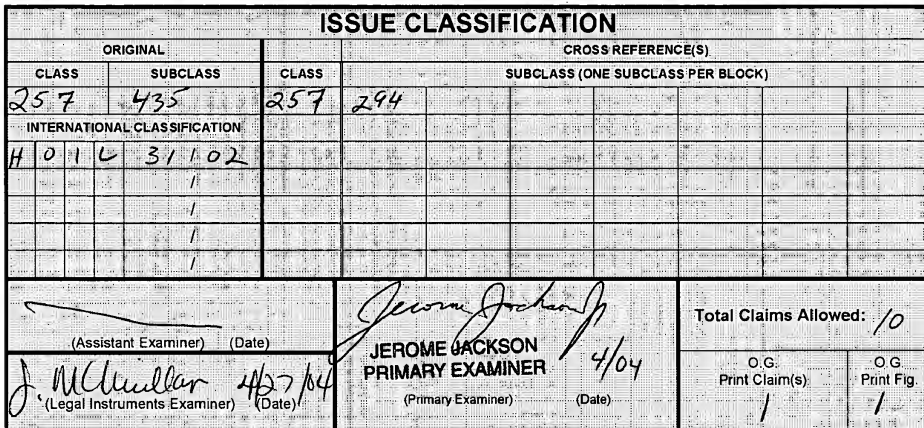 ISSUE CLASSIFICATION
ORIGINAL CROSS REFERENCE(S)
CLASS SUBCLASS CLASS SUBCLASS (ONE SUBCLASS PER BLOCK)
257 435 257 294
INTERNATIONAL CLASSIFICATION
H 0 1 L 31 / 02
/
/
/
/
(Assistant Examiner) (Date)
J. McMillan 4/27/04
(Legal Instruments Examiner) (Date)
Jerome Jackson Jr
JEROME JACKSON
PRIMARY EXAMINER 4/04
(Primary Examiner) (Date)
Total Claims Allowed: 10
O.G. Print Claim(s) O.G. Print Fig.
1 1